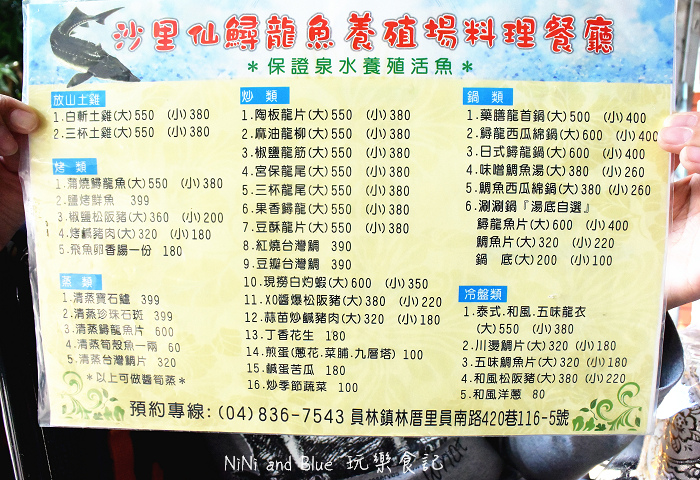 沙里仙鱘龍魚養植場料理餐廳
*保證泉水養殖活魚*
放山土雞
1.白斬土雞(大)550 (小)380
2.三杯土雞(大)550 (小)380
烤 類
1.蒲燒鱘龍魚(大)550 (小)380
2.鹽烤鮮魚 399
3.椒鹽松阪豬(大)360 (小)200
4.烤鹹豬肉(大)320 (小)180
5.飛魚卵香腸一份 180
蒸 類
1.清蒸寶石鱸 399
2.清蒸珍珠石斑 399
3.清蒸鱘龍魚片 600
4.清蒸筍殼魚一兩 60
5.清蒸台灣鯛片 320
*以上可做醬筍蒸*
炒 類
1.陶板龍片(大)550 (小)380
2.麻油龍柳(大)550 (小)380
3.椒鹽龍筋(大)550 (小)380
4.宮保龍尾(大)550 (小)380
5.三杯龍尾(大)550 (小)380
6.果香鱘龍(大)550 (小)380
7.豆酥龍片(大)550 (小)380
8.紅燒台灣鯛 390
9.豆瓣台灣鯛 390
10.現撈白灼蝦(大)600 (小)350
11.XO醬爆松阪豬(大)380 (小)220
12.蒜苗炒鹹豬肉(大)320 (小)180
13.丁香花生 180
14.煎蛋(蔥花.菜脯.九層塔) 100
15.鹹蛋苦瓜 180
16.炒季節蔬菜 100
鍋 類
1.藥膳龍首鍋(大)500 (小)400
2.鱘龍西瓜綿鍋(大)600 (小)400
3.日式鱘龍鍋(大)600 (小)400
4.味噌鯛魚湯(大)380 (小)260
5.鯛魚西瓜綿鍋(大)380 (小)260
6.涮涮鍋『湯底自選』
鱘龍魚片(大)600 (小)400
鯛魚片(大)320 (小)220
鍋 底(大)200 (小)100
冷盤類
1.泰式.和風.五味龍衣
(大)550 (小)380
2.川燙鯛片(大)320 (小)180
3.五味鯛魚片(大)320 (小)180
4.和風松阪豬(大)380 (小)220
5.和風洋蔥 80
預約專線:(04)836-7543 員林鎮林厝里員南路420巷116-5號
NiNi and Blue 玩樂食記